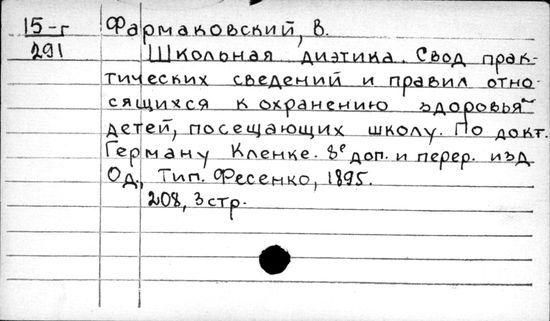 15-г Фармаковский, В.
291 Школьная диэтика. Свод прак-
тических сведений и правил отно-
сящихся к охранению здоровья
детей, посещающих школу. По докт.
Герману Кленке. 8е доп. и перер. изд.
Од., Тип. Фесенко, 1895.
208, 3 стр.